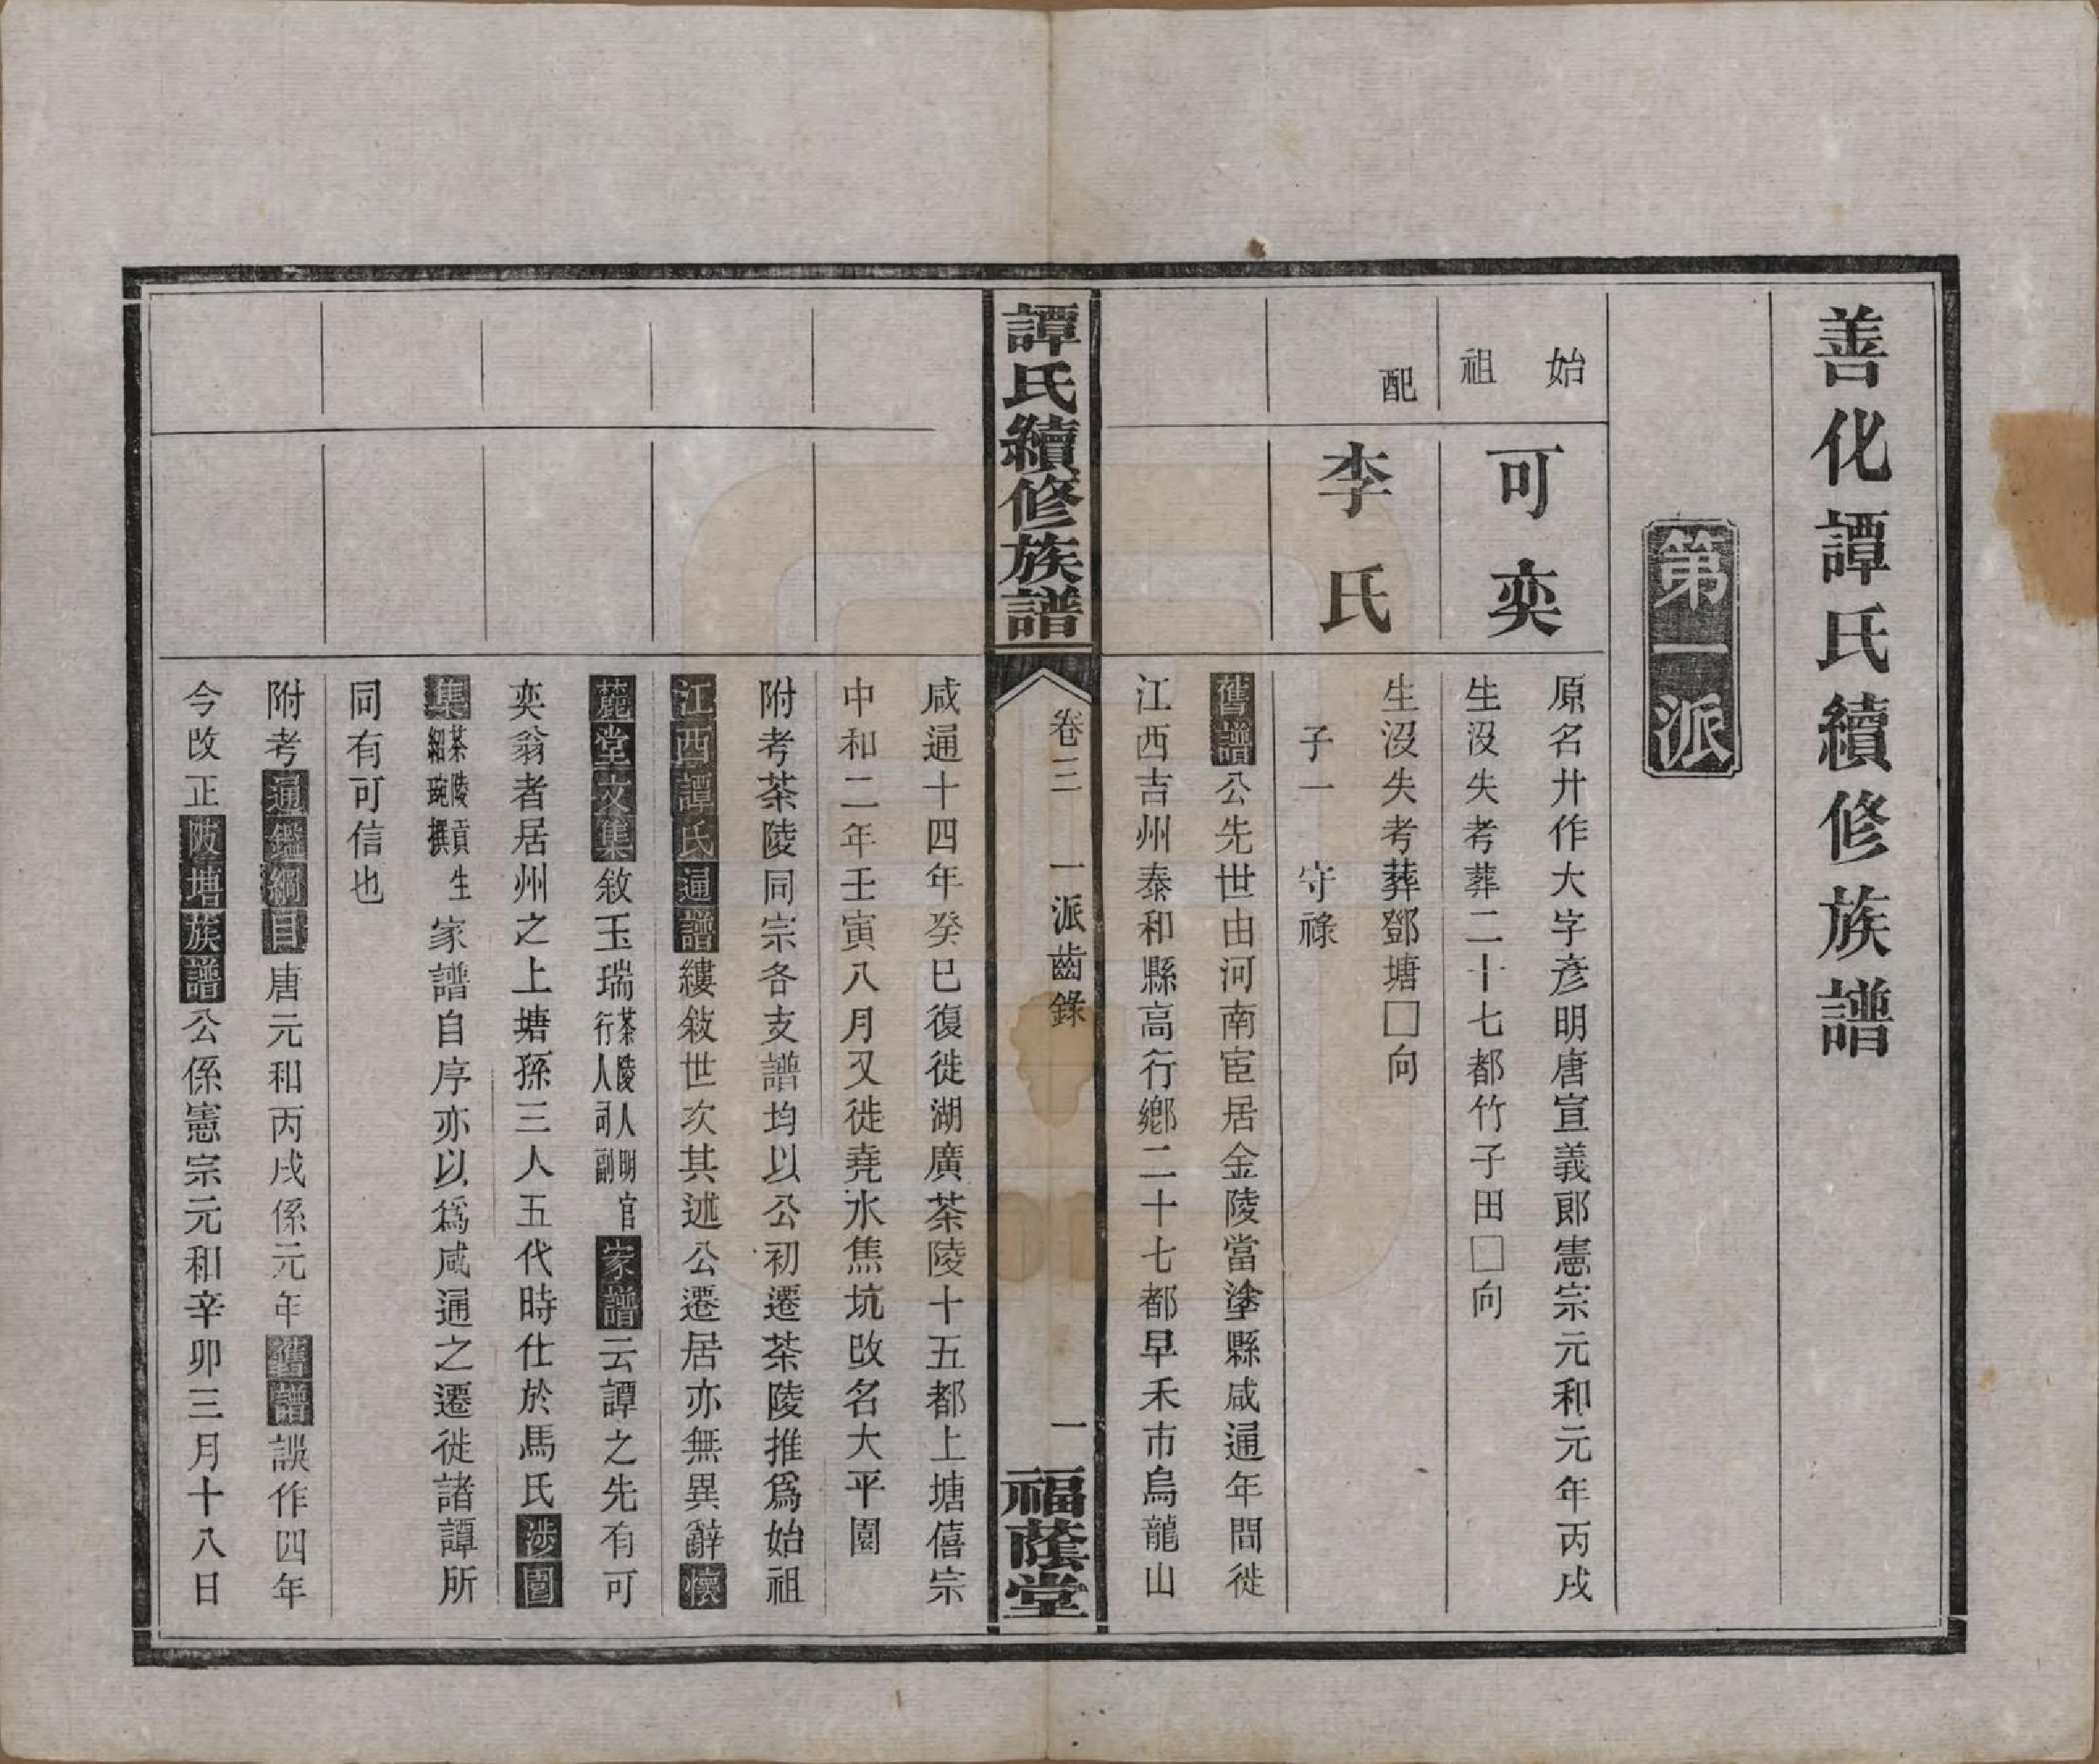 善化譚氏續修族譜
第一派
始祖
可奕
原名廾作大字彥明唐宣義郎憲宗元和元年丙戌
生沒失考葬二十七都竹子田□向
配
李氏
生沒失考葬鄧塘□向
子一 守祿
舊譜公先世由河南宦居金陵當塗縣咸通年間徙
江西吉州泰和縣高行鄉二十七都早禾市烏龍山
譚氏續修族譜
卷三 一派齒錄
一
福蔭堂
咸通十四年癸巳復徙湖廣茶陵十五都上塘僖宗
中和二年壬寅八月又徙堯水焦坑改名大平園
附考茶陵同宗各支譜均以公初遷茶陵推爲始祖
江西譚氏通譜縷敘世次其述公遷居亦無異辭懷
麓堂文集敘玉瑞茶陵人明官行人司副家譜云譚之先有可
奕翁者居州之上塘孫三人五代時仕於馬氏涉園
集茶陵貢生紹琬撰家譜自序亦以爲咸通之遷徙諸譚所
同有可信也
附考通鑑綱目唐元和丙戌係元年舊譜誤作四年
今改正陂塘族譜公係憲宗元和辛卯三月十八日